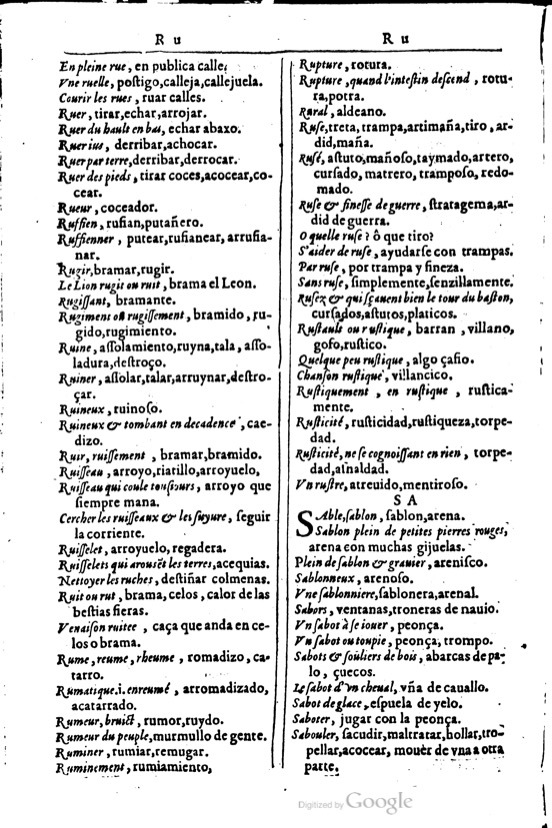 R u
En pleine rue, en publica calle.
Vne ruelle, postigo,calleja,callejuela.
Courir les rues, ruar calles.
Ruer, tirar,echar,arrojar.
Ruer du hault en bas, echar abaxo.
Ruer ius, derribar,achocar.
Ruer par terre,derribar,derrocar.
Ruer des pieds, tirar coces,acocear,co-
cear.
Rueur, coceador.
Ruffien, rufian,putañero.
Ruffienner, putear,rufianear, arrufia-
nar.
Rugir,bramar,rugir.
Le Lion rugit ou ruit, brama el Leon.
Rugissant, bramante.
Rugiment ou rugissement, bramido, ru-
gido,rugimiento.
Ruine, assolamiento,ruyna,tala, asso-
ladura,destroço.
Ruiner, assolar,talar,arruynar,destro-
çar.
Ruineux, ruinoso.
Ruineux & tombant en decadence, cae-
dizo.
Ruir, ruissement, bramar,bramido.
Ruisseau, arroyo,riatillo,arroyuelo,
Ruisseau qui coule tousiours, arroyo que
siempre mana.
Cercher les ruisseaux & les suyure, seguir
la corriente.
Ruisselet, arroyuelo, regadera.
Ruisselets qui arousēt les terres,acequias.
Nettoyer les ruches, destiñar colmenas.
Ruit ou rut, brama, celos, calor de las
bestias fieras.
Venaison ruitee, caça que anda en ce-
los o brama.
Rume, reume, rheume, romadizo, ca-
tarro.
Rumatique.i.enreumé, arromadizado,
acatarrado.
Rumeur, bruict, rumor,ruydo.
Rumeur du peuple,murmullo de gente.
Ruminer, rumiar,remugar.
Ruminement, rumiamiento,
R u
Rupture, rotura.
Rupture, quand l'intestin descend, rotu-
ra,potra.
Rural, aldeano.
Ruse,treta, trampa,artimaña,tiro, ar-
did,maña.
Rusé,astuto,mañoso,taymado,artero,
cursado, matrero, tramposo, redo-
mado.
Ruse & finesse de guerre, stratagema,ar-
did de guerra.
O quelle ruse? ô que tiro?
S'aider de ruse, ayudarse con trampas.
Par ruse, por trampa y fineza.
Sans ruse, simplemente,senzillamente.
Rusez & qui sçauent bien le tour du baston,
cursados,astutos,platicos.
Rustault ou rustique, barran, villano,
gofo,rustico.
Quelque peu rustique, algo çafio.
Chanson rustique, villancico.
Rustiquement, en rustique, rustica-
mente.
Rusticité, rusticidad,rustiqueza,torpe-
dad.
Rusticité, ne se cognoissant en rien, torpe-
dad,asnaldad.
Vn rustre, atreuido,mentiroso.
S A
SAble,sablon, sablon,arena.
Sablon plein de petites pierres rouges,
arena con muchas gijuelas.
Plein de sablon & grauier, arenisco.
Sablonneux, arenoso.
Vne sablonniere,sablonera,arenal.
Sabors, ventanas,troneras de nauio.
Vn sabot à se iouer, peonça.
Vn sabot ou toupie, peonça, trompo.
Sabots & souliers de bois, abarcas de pa-
lo, çuecos.
Le sabot d'vn cheual, vña de cauallo.
Sabot de glace, espuela de yelo.
Saboter, jugar con la peonça.
Sabouler, sacudir,maltratar,hollar,tro-
pellar,acocear, mouèr de vna a otra
parte.
Digitized by Google